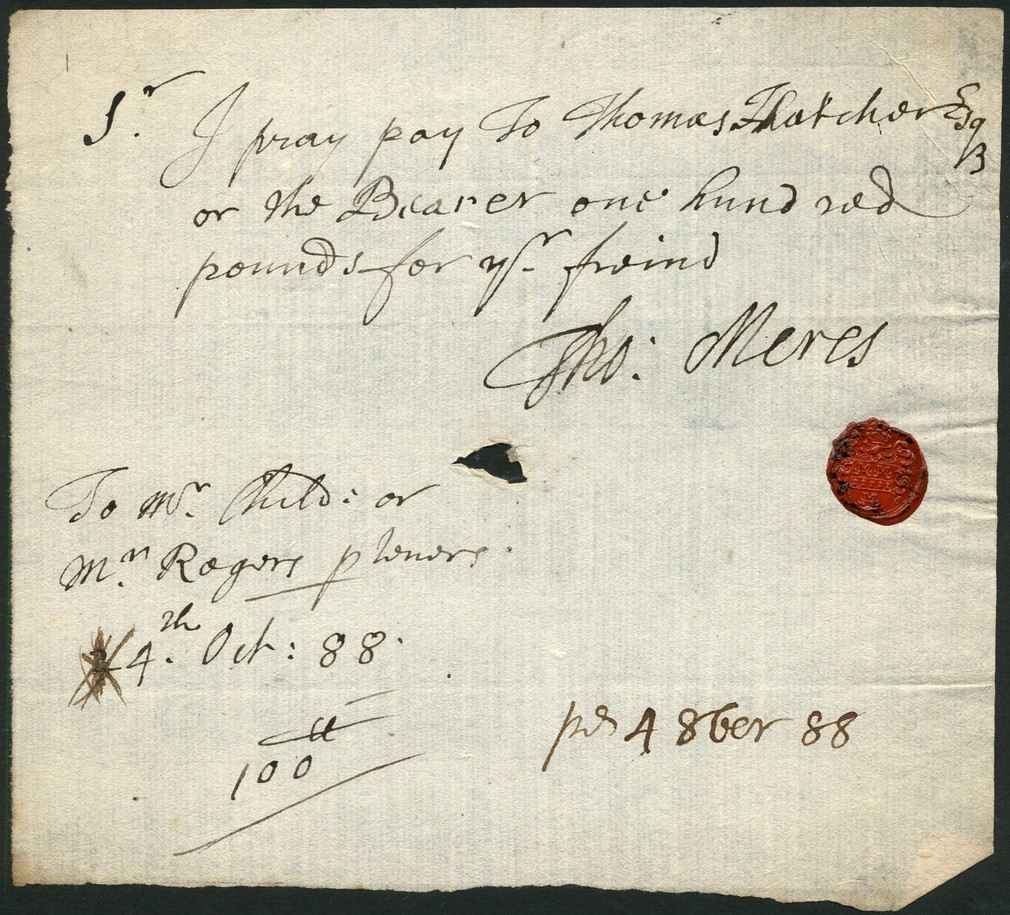 Sr. I pray pay To Thomas Thatcher Esq
or the Bearer one hundred
pounds for yr freind
Tho: Meres
To Mr. Child: or
Mr. Rogers
4th. Oct: 88.
100ll
pd 4 8ber 88